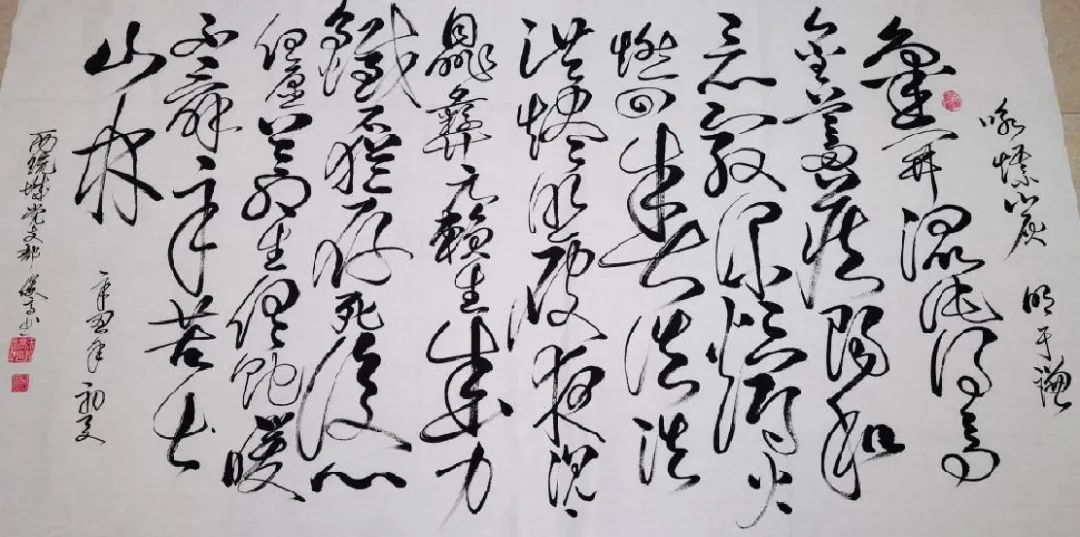 咏煤炭
明于谦
凿开混沌得乌
金蓄藏阳和
意最深爝火
燃回春浩浩
洪炉照破夜沉沉
鼎彝元赖生成力
铁石犹存死后心
但愿苍生俱饱暖
不辞辛苦出
山林
辛丑年初夏
城党支部